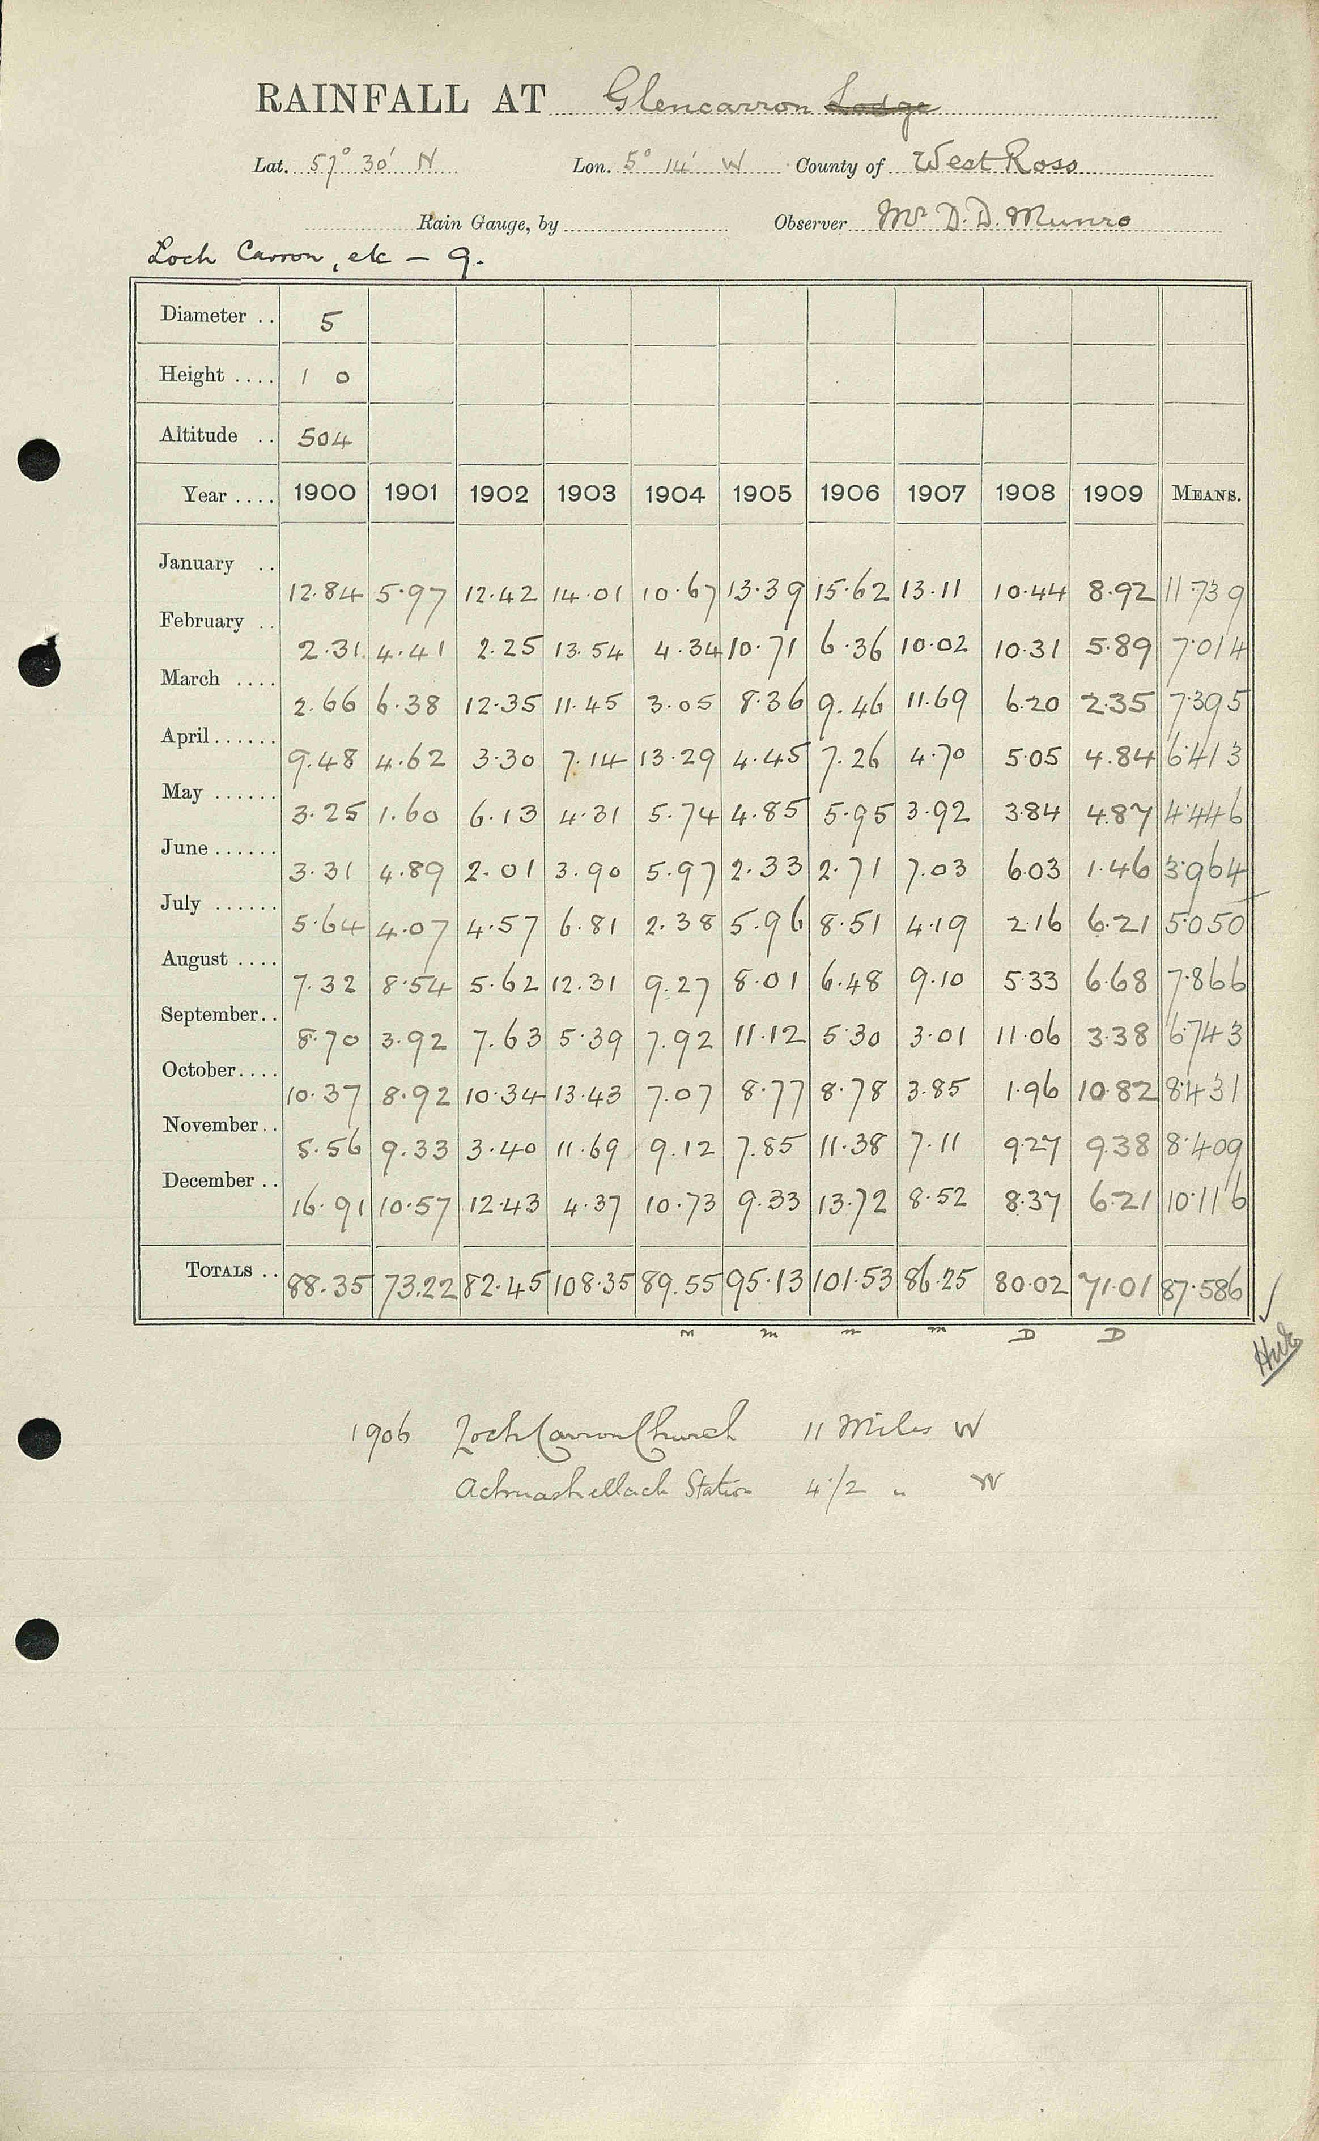 RAINFALL AT Glencarron Lodge
Lat. 57° 30' N Lon. 5° 14' W County of West Ross
Rain Gauge, by Observer Mr D. D. Munro
Loch Carron, etc - 9.
Diameter .. 5
Height .... 1 0
Altitude .. 504
Year .... 1900 1901 1902 1903 1904 1905 1906 1907 1908 1909 MEANS.
January .. 12.84 5.97 12.42 14.01 10.67 13.39 15.62 13.11 10.44 8.92 11.739
February .. 2.31 4.41 2.25 13.54 4.34 10.71 6.36 10.02 10.31 5.89 7.014
March .... 2.66 6.38 12.35 11.45 3.05 8.36 9.46 11.69 6.20 2.35 7.395
April...... 9.48 4.62 3.30 7.14 13.29 4.45 7.26 4.70 5.05 4.84 6.413
May ...... 3.25 1.60 6.13 4.31 5.74 4.85 5.95 3.92 3.84 4.87 4.446
June ...... 3.31 4.89 2.01 3.90 5.97 2.33 2.71 7.03 6.03 1.46 3.964
July ...... 5.64 4.07 4.57 6.81 2.38 5.96 8.51 4.19 2.16 6.21 5.050
August .... 7.32 8.54 5.62 12.31 9.27 8.01 6.48 9.10 5.33 6.68 7.866
September.. 8.70 3.92 7.63 5.39 7.92 11.12 5.30 3.01 11.06 3.38 6.743
October.... 10.37 8.92 10.34 13.43 7.07 8.77 8.78 3.85 1.96 10.82 8.431
November.. 5.56 9.33 3.40 11.69 9.12 7.85 11.38 7.11 9.27 9.38 8.409
December .. 16.91 10.57 12.43 4.37 10.73 9.33 13.72 8.52 8.37 6.21 10.116
TOTALS .. 88.35 73.22 82.45 108.35 89.55 95.13 101.53 86.25 80.02 71.01 87.586
m m m m D D
1906 Loch Carron Church 11 Miles W
Achnashellach Station 4 1/2 " W